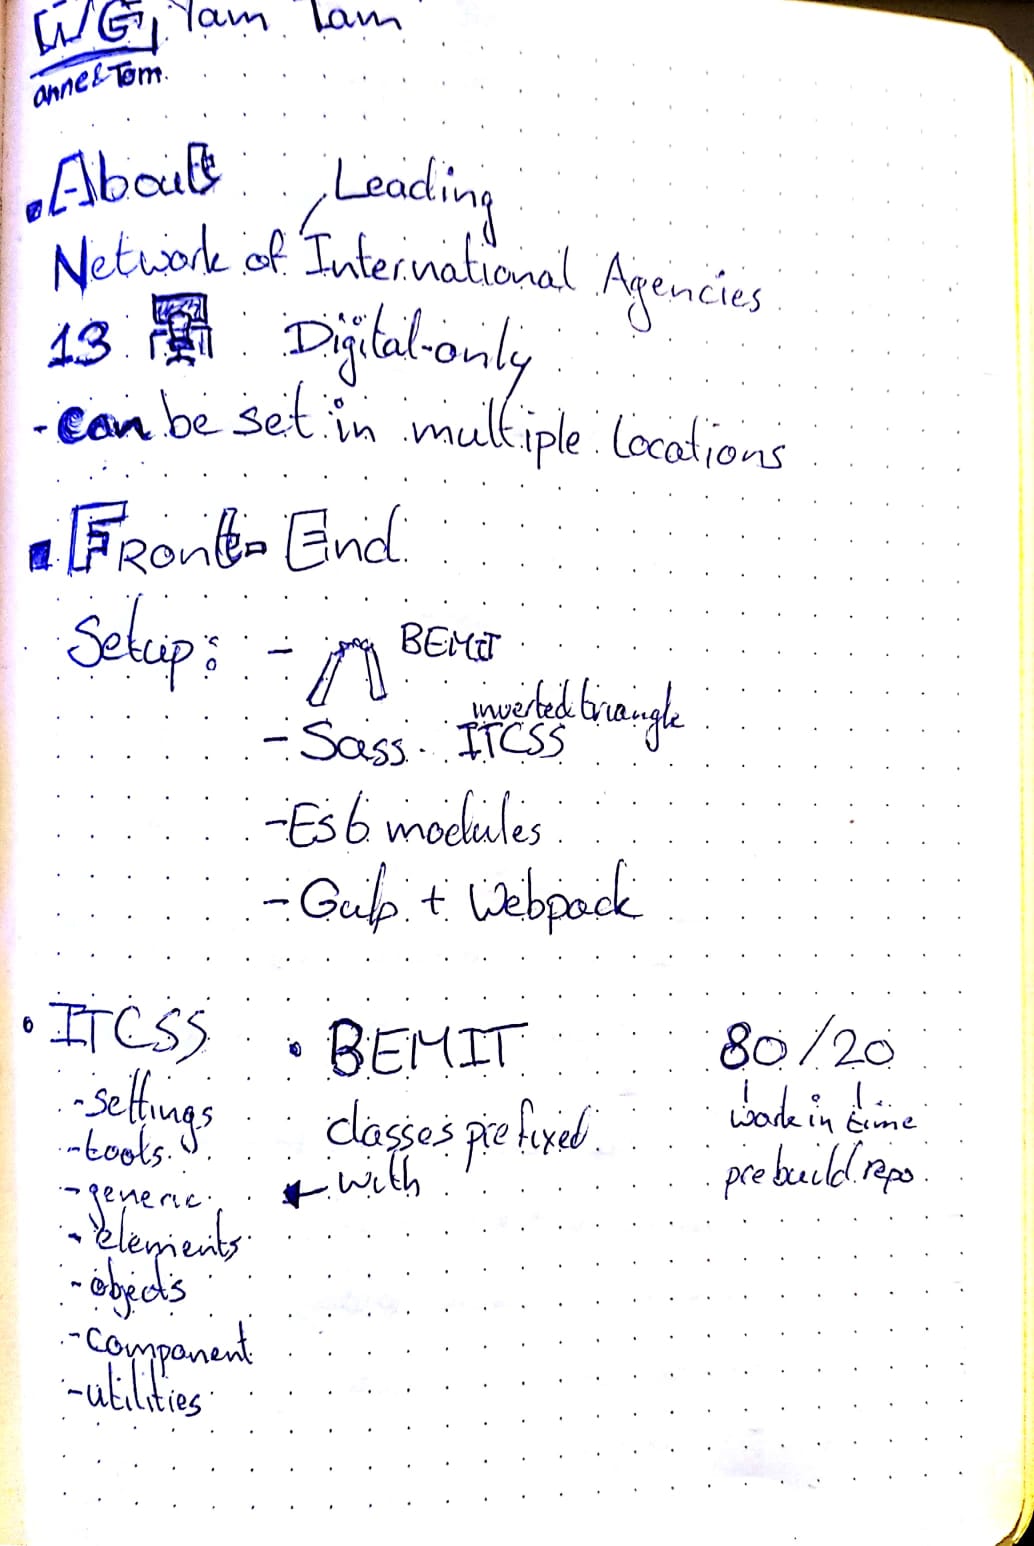 WG, Yam Yam
anne & Tom.
. About
Leading
Network of International Agencies
13 Digital-only
- Can be set in multiple locations
Front-End
Setup: - BEMIT
inverted triangle
- Sass. ITCSS
- Es6 modules
- Gulp + Webpack
• ITCSS
- settings
- tools
- generic
- elements
- objects
- component
- utilities
• BEMIT
classes prefixed
← with
80/20
work in time
prebuild repo